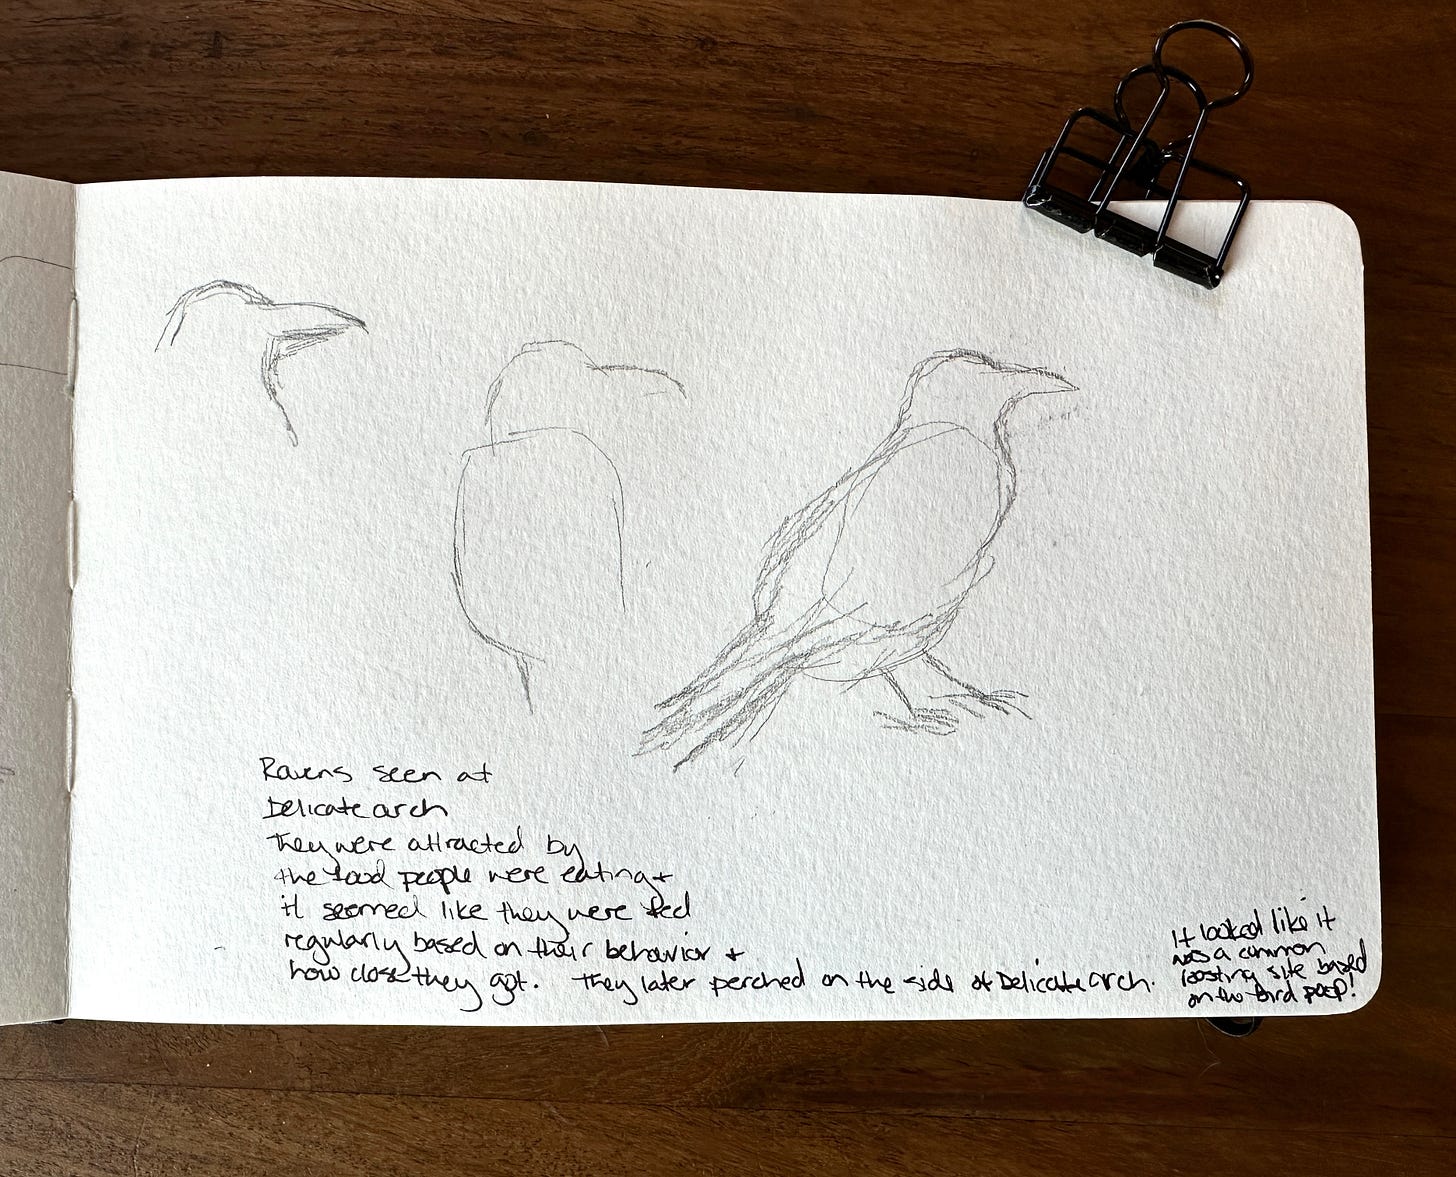 Ravens seen at
Delicate arch
They were attracted by
the food people were eating +
it seemed like they were fed
regularly based on their behavior +
how close they got. They later perched on the side of Delicate arch.
It looked like it
was a common
roosting site based
on the bird poop!